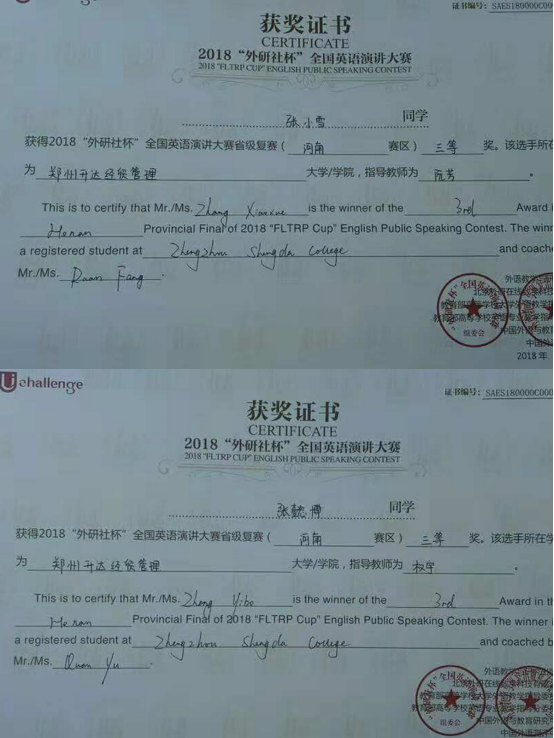 证书编号: SAES180000C00
获奖证书
CERTIFICATE
2018“外研社杯”全国英语演讲大赛
2018 "FLTRP CUP" ENGLISH PUBLIC SPEAKING CONTEST
张小雪 同学
获得2018“外研社杯”全国英语演讲大赛省级复赛( 河南 赛区) 三等 奖。该选手所在
为 郑州升达经贸管理 大学/学院,指导教师为 阮芳 。
This is to certify that Mr./Ms. Zhang Xiaoxue is the winner of the 3rd Award in
Henan Provincial Final of 2018 "FLTRP Cup" English Public Speaking Contest. The winn
a registered student at Zhengzhou Shengda College and coache
Mr./Ms. Ruan Fang .
组委会
2018 年
Uchallenge
证书编号: SAES180000C00
获奖证书
CERTIFICATE
2018“外研社杯”全国英语演讲大赛
2018 "FLTRP CUP" ENGLISH PUBLIC SPEAKING CONTEST
张懿博 同学
获得2018“外研社杯”全国英语演讲大赛省级复赛( 河南 赛区) 三等 奖。该选手所在学
为 郑州升达经贸管理 大学/学院,指导教师为 权宇 。
This is to certify that Mr./Ms. Zhang Yibo is the winner of the 3rd Award in th
Henan Provincial Final of 2018 "FLTRP Cup" English Public Speaking Contest. The winner i
a registered student at Zhengzhou Shengda College and coached b
Mr./Ms. Quan Yu .
组委会